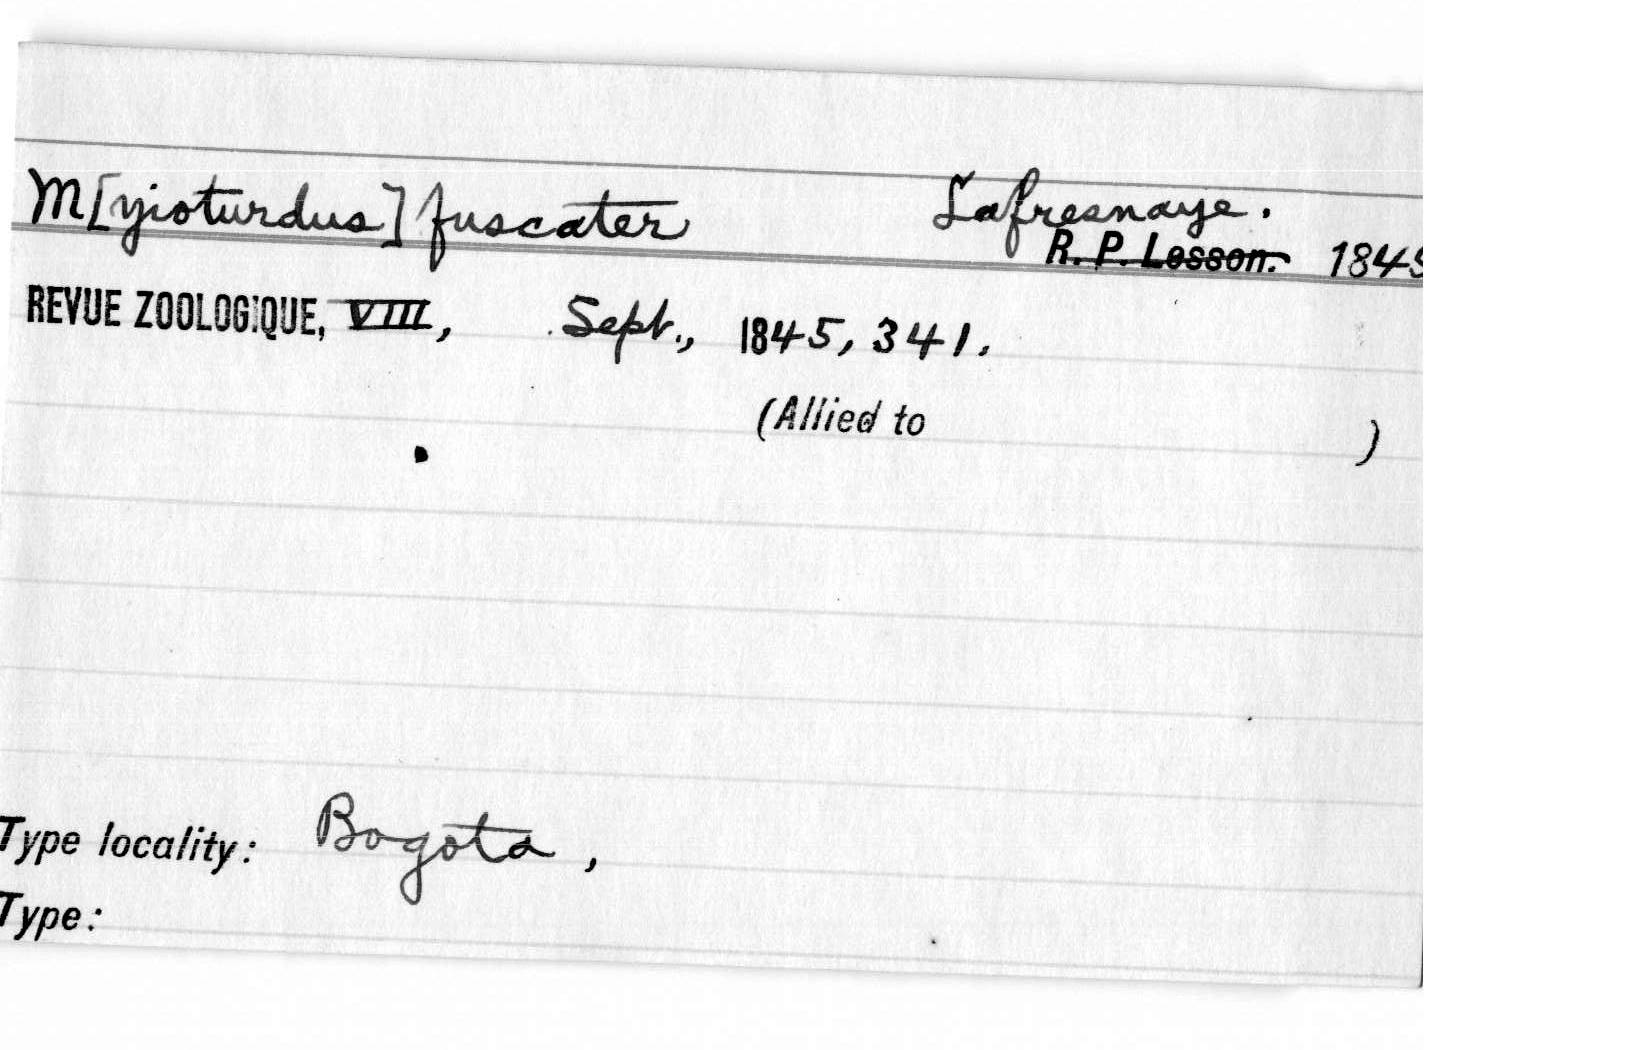 M[yioturdus] fuscater Lafresnaye.
R. P. Lesson. 1845
REVUE ZOOLOGIQUE, VIII, Sept., 1845, 341.
(Allied to )
Type locality: Bogota,
Type: